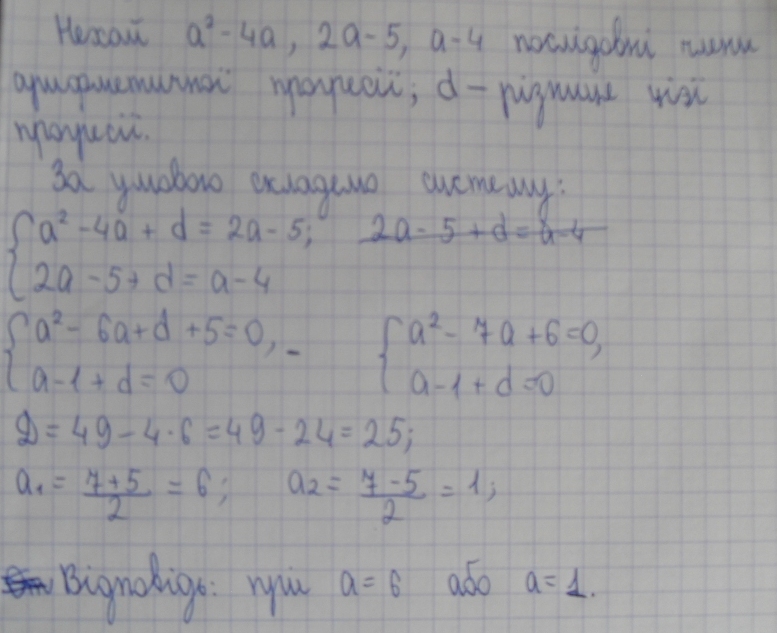 Нехай a² - 4a, 2a - 5, a - 4 послідовні члени
арифметичної прогресії; d – різниця цієї
прогресії.
За умовою складемо систему:
{ a² - 4a + d = 2a - 5; 2a - 5 + d = a - 4
{ 2a - 5 + d = a - 4
{ a² - 6a + d + 5 = 0, - { a² - 7a + 6 = 0,
{ a - 1 + d = 0 { a - 1 + d = 0
D = 49 - 4·6 = 49 - 24 = 25;
a₁ = (7+5)/2 = 6; a₂ = (7-5)/2 = 1;
Відповідь: при a = 6 або a = 1.